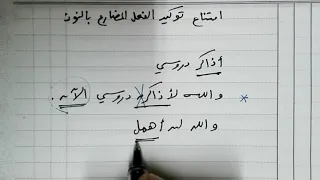 امتناع توكيد الفعل المضارع بالنون
أذاكر دروسي
* والله لأذاكر دروسي الآن .
والله لن أهمل